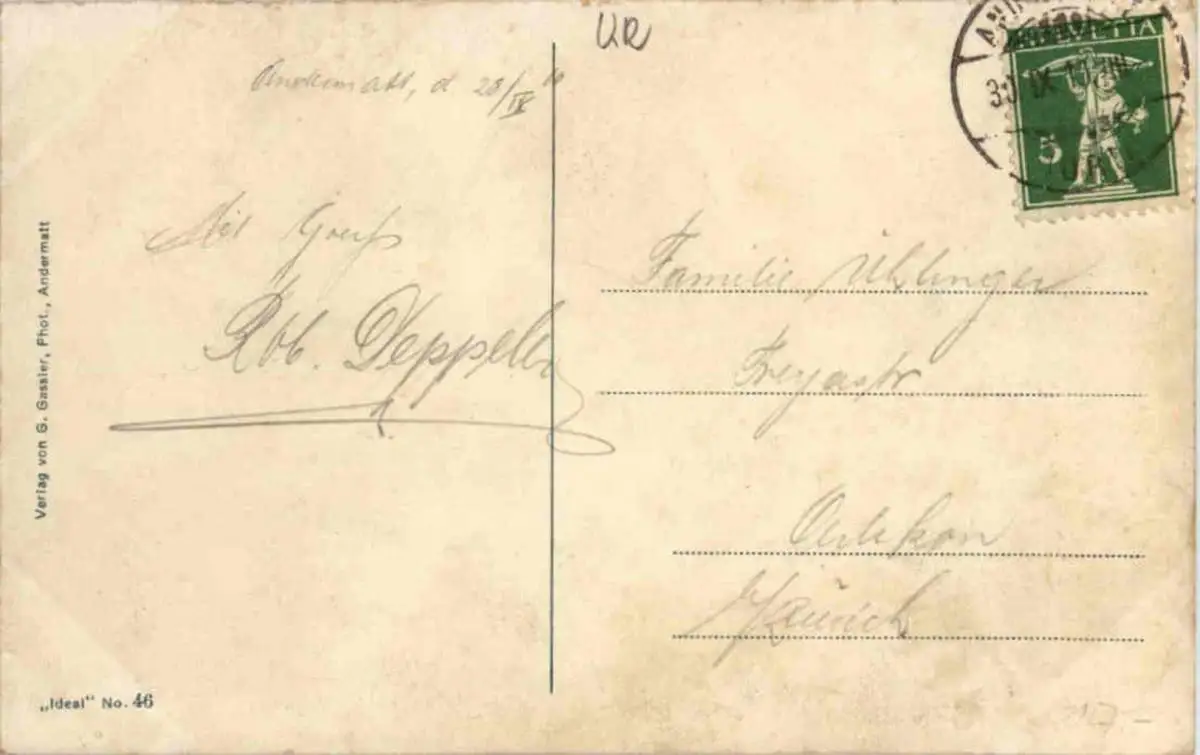 UR
Andermatt, d 28/IX 10
Mit Gruss
Rob. Deppeler
Familie Uhlinger
Freyastr
Oerlikon
b/Zürich
HELVETIA
5
30. IX. 10. VIII
Verlag von G. Gassler, Phot., Andermatt
„Ideal“ No. 46